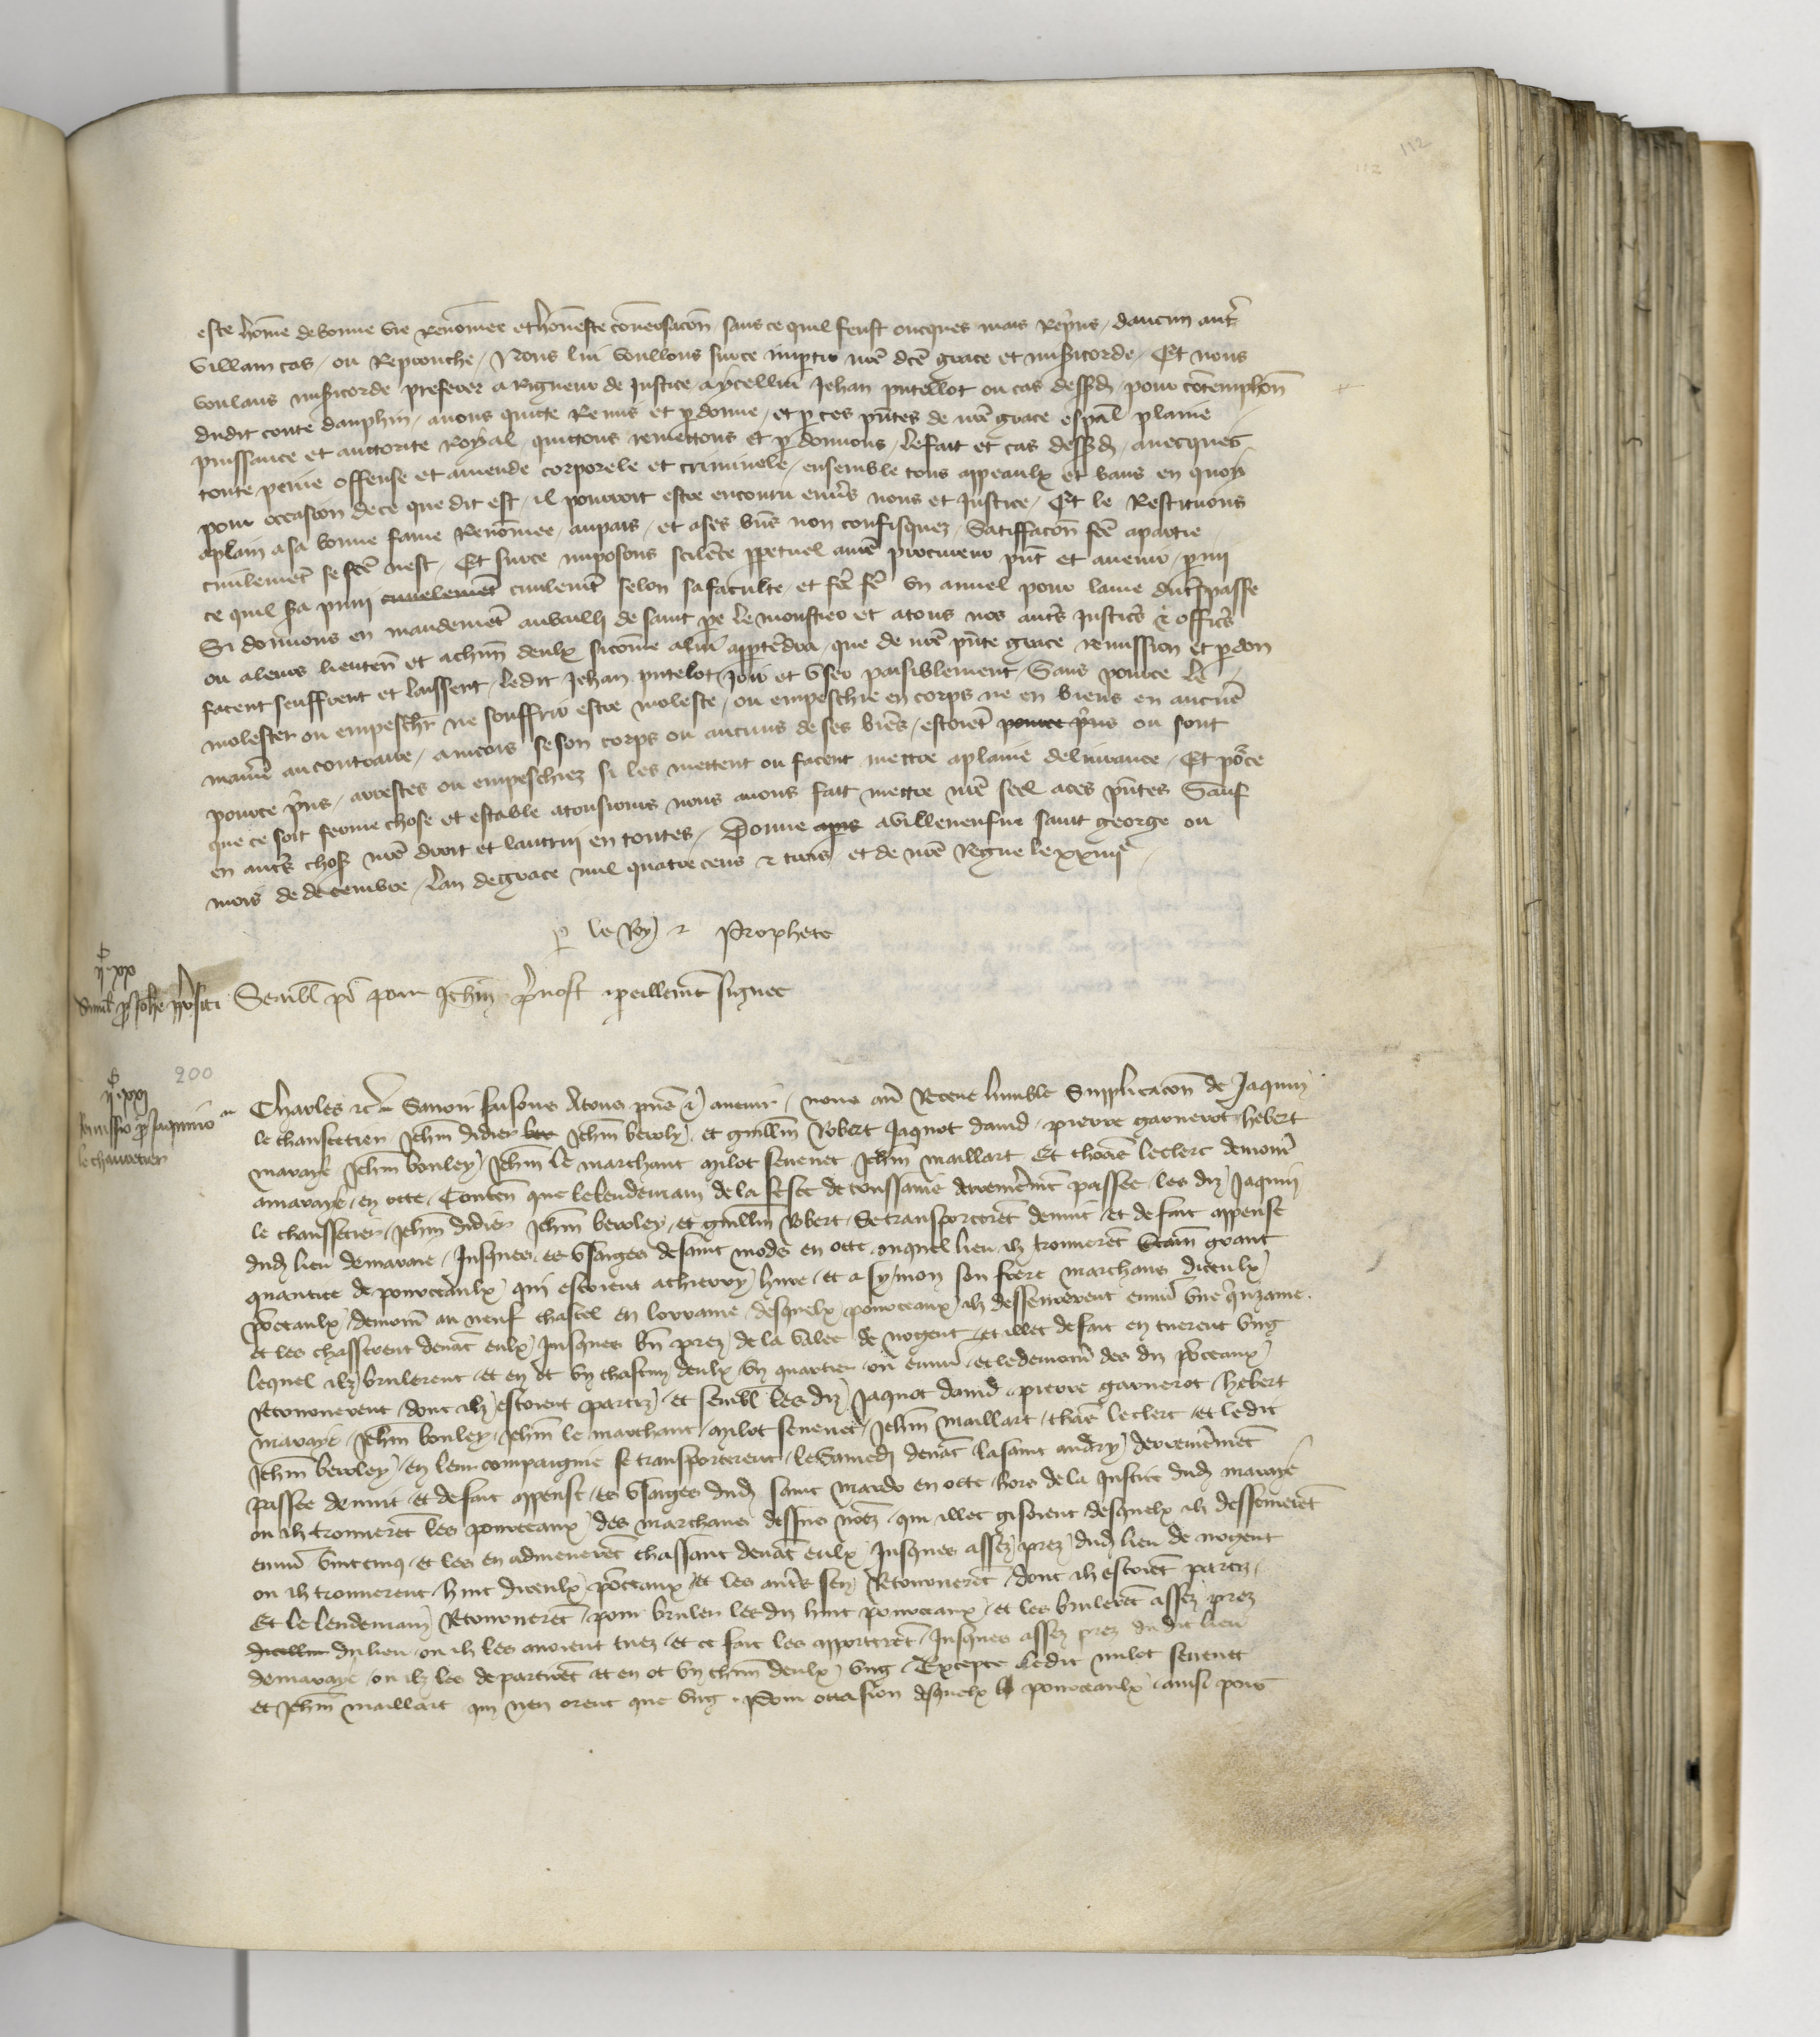 112
112
este hõme de bonne vie Renõmee et hõneste conv̾sacõn / sans ce quil feust oncques mais Rep̾ins / daucun aut̾
villain cas / ou Reprouche / Nous lui voulons sur ce imp̱tir nr̃e dc̃e grace et mis̾icorde / Et nous
voulans mis̾icorde preferer a Rigueur de Justice a ycellui Jehan putellot ou cas dessusd̾ / pour cõtemplõn
dudit conte dauphin / auons quicte Remis et p̱donne / et p̱ ces pñtes de nr̃e grace esp̃al plaine
puissance et auctorite Royal / quictons remettons et p̱donnons / le fait et cas dessusd̾ / auecques
toute peine offense et amende corporele et criminele / ensemble tous appeaulx et bans en quoy
pour occasion de ce que dit est / il pourroit estre encouru enu̾s nous et Justice / Et le Restituons
a plain a sa bonne fame Renõmee / au pais / et a ses biẽs non confisquez / Satiffacõn fc̃e a partie
ciuilemẽt se fc̃e nest / Et sur ce imposons scilẽce pp̱etuel a nr̃e procureur pñt et auenir / p̱mi
ce quil s̾a puni cruelement ciuilemẽt selon sa faculte / et fc̃e fc̃e vn annuel pour lame du t̾spasse
Si donnons en mandemẽt au bailli de saint pe le moustier et a tous nos aut̾s Justic̾s & offic̾s
ou a leurs lieuteñ et a chũn deulx sicõme a lui app̱tẽdra / que de nr̃e pñte grace remission et p̱don
facent seuffrent et laissent / ledit Jehan putelot / Joir et vser paisiblement / Sans pour ce le
molester ou empesch̾r ne souffrir estre moleste / ou empeschie en corps ne en biens en aucũe
manie̾ au contraire / aincois se son corps ou aucuns de ses biẽs / estoiẽt pource p̾ns ou sont
pource p̾ns / arrestes ou empeschiez si les mettent ou facent mettre a plaine deliurance / Et põr ce
que ce soit ferme chose et estable a tousiours nous auons fait mettre nr̃e seel a ces pñtes Sauf
en aut̾s chos̾ nr̃e droit et lautrui en toutes / Donne apres a villeneufue saint george ou
mois de decembre / lan de grace mil quatre cens & trois / et de nr̃e Regne le xxiiiiᵉ
p̱ le Roy & Prophete
ii.xx
Simil̃ p̱ Joh̃e p̾positi
Sembl̃ pour Jeh̃n p̾uost p̱eillem̃t signee
200
ii.xxi
Remissio p̱ Jaqmino
le chaucetier
Charles &c̃ Sauoir faisons A tous pñs & auenir / nous auõs Receue lumble Supplicacõn de Jaquin
le chaucetier Jeh̃n didier ber Jeh̃n beroley / et guill̃m Robert Jaquot dauid / pierre garnerot / hebert
maraye Jeh̃n bouley / Jeh̃n le marchant milot seuenet Jeh̃n maillart Et thõas leclerc demour̃
a maraye / en otte / Conteñ que lelendemain de la feste de toussains derrenierem̃t passee / les diz Jaquin
le chaussetier / Jeh̃n didier Jeh̃n beroley / et guill̃m Robert / Se transporterẽt de nuit / et de fait appense
dud̾ lieu de maraie / Jusques es vsaiges de saint mards en otte / ouquel lieu ilz trouuerẽt certaĩ grant
quantite de pourceaulx / qui estoient a thierry hure / et a symon son frere marchans diceulx
põrceaulx / demour̃ au neuf chastel en lorraine / desquelx pourceaux ilz dessemrerent enuir̃ vne q̾nzaine.
et les chasserent deuãt eulx / Jusques biẽ prez de la valee de nogent / et illec de fait en tuerent vng
lequel ilz brulerent / et en ot vn chascun deulx vn quartier ou enuir̃ / et le demour̃ des diz põrceaux
Retournerent / dont ilz estoient partiz / et sembl̃ les diz Jaquot dauid / pierre garnerot / hebert
maraye / Jeh̃n bouley / Jeh̃n le marchant / milot seuenet / Jeh̃n maillart / thõas leclerc / et ledit
Jeh̃n beroley / en leur compaignie se transporterent / le Samedi deuãt la saint andry / derrenierem̃t
passee de nuit / et de fait appense / es vsaiges dud̾ saint mardz en otte / hors de la Justice dud̾ maraye
ou ilz trouuerẽt les pourceaux / des marchans dessus nõez / qui illec gisoient desquelx ilz dessemrerẽt
enuir̃ vint cinq / et les en admenerẽt chassant deuãt eulx / Jusques assez prez dud̾ lieu de nogent
ou ilz trouuerent / huit diceulx põrceaux / et les aut̾s sen Retournerẽt / dont ilz estoiẽt partiz /
Et le lendemain Retournerẽt / pour bruler les diz huit pourceaux / et les brulerẽt assez prez
dicellui du lieu / ou ilz les auoient tuez / et ce fait les apporterẽt / Jusques assez prez du dit lieu
de maraye / ou ilz les departirẽt et en ot vn chũn deulx / vng / Excepte ledit milot seuenet
et Jeh̃n maillart qui nen orent que vng / Pour occasion desquelx pourceaulx / ainsi pour